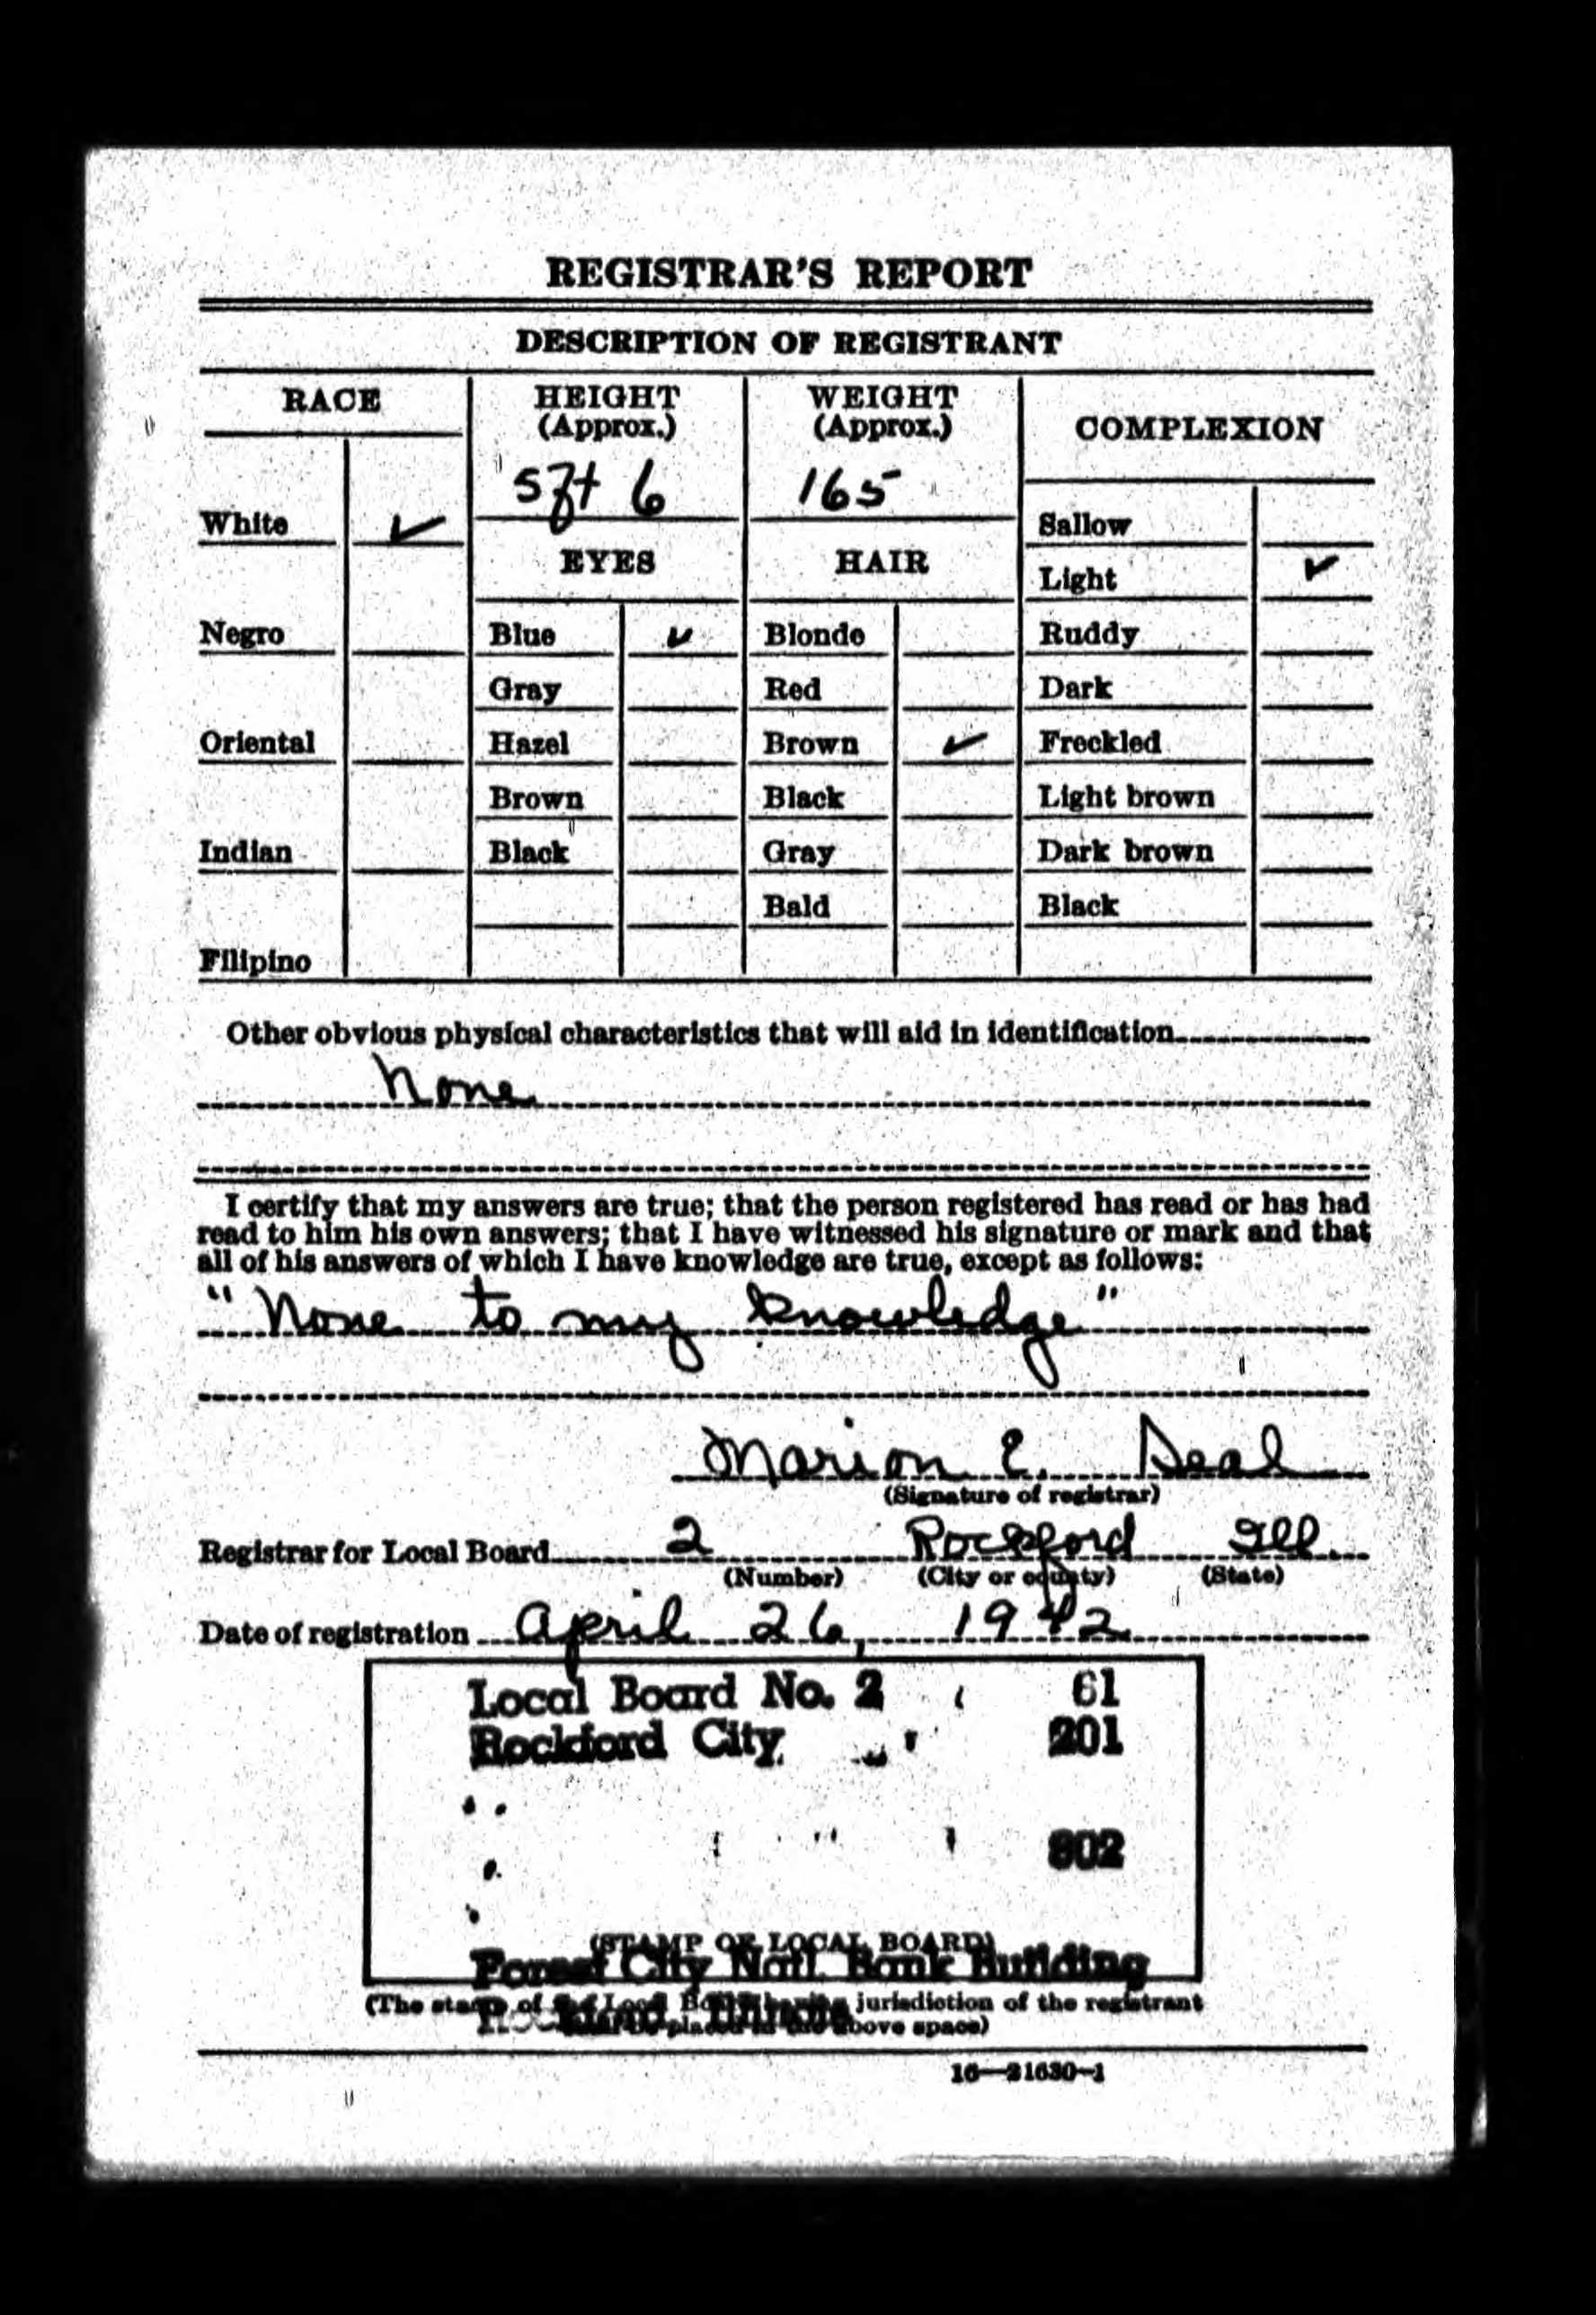 REGISTRAR'S REPORT
DESCRIPTION OF REGISTRANT
RACE
HEIGHT
(Approx.)
WEIGHT
(Approx.)
COMPLEXION
5ft 6
165
White ✓
Sallow
EYES
HAIR
Light ✓
Negro
Blue ✓
Blonde
Ruddy
Gray
Red
Dark
Oriental
Hazel
Brown ✓
Freckled
Brown
Black
Light brown
Indian
Black
Gray
Dark brown
Bald
Black
Filipino
Other obvious physical characteristics that will aid in identification
None
I certify that my answers are true; that the person registered has read or has had
read to him his own answers; that I have witnessed his signature or mark and that
all of his answers of which I have knowledge are true, except as follows:
"None to my knowledge"
Marion E. Deal
(Signature of registrar)
Registrar for Local Board 2 Rockford Ill.
(Number) (City or county) (State)
Date of registration April 26, 1942
Local Board No. 2 61
Rockford City 201
802
(STAMP OF LOCAL BOARD)
Forest City Natl. Bank Building
(The stamp of the Local Board having jurisdiction of the registrant
Rockford, Illinois
placed in the above space)
16—21630-1